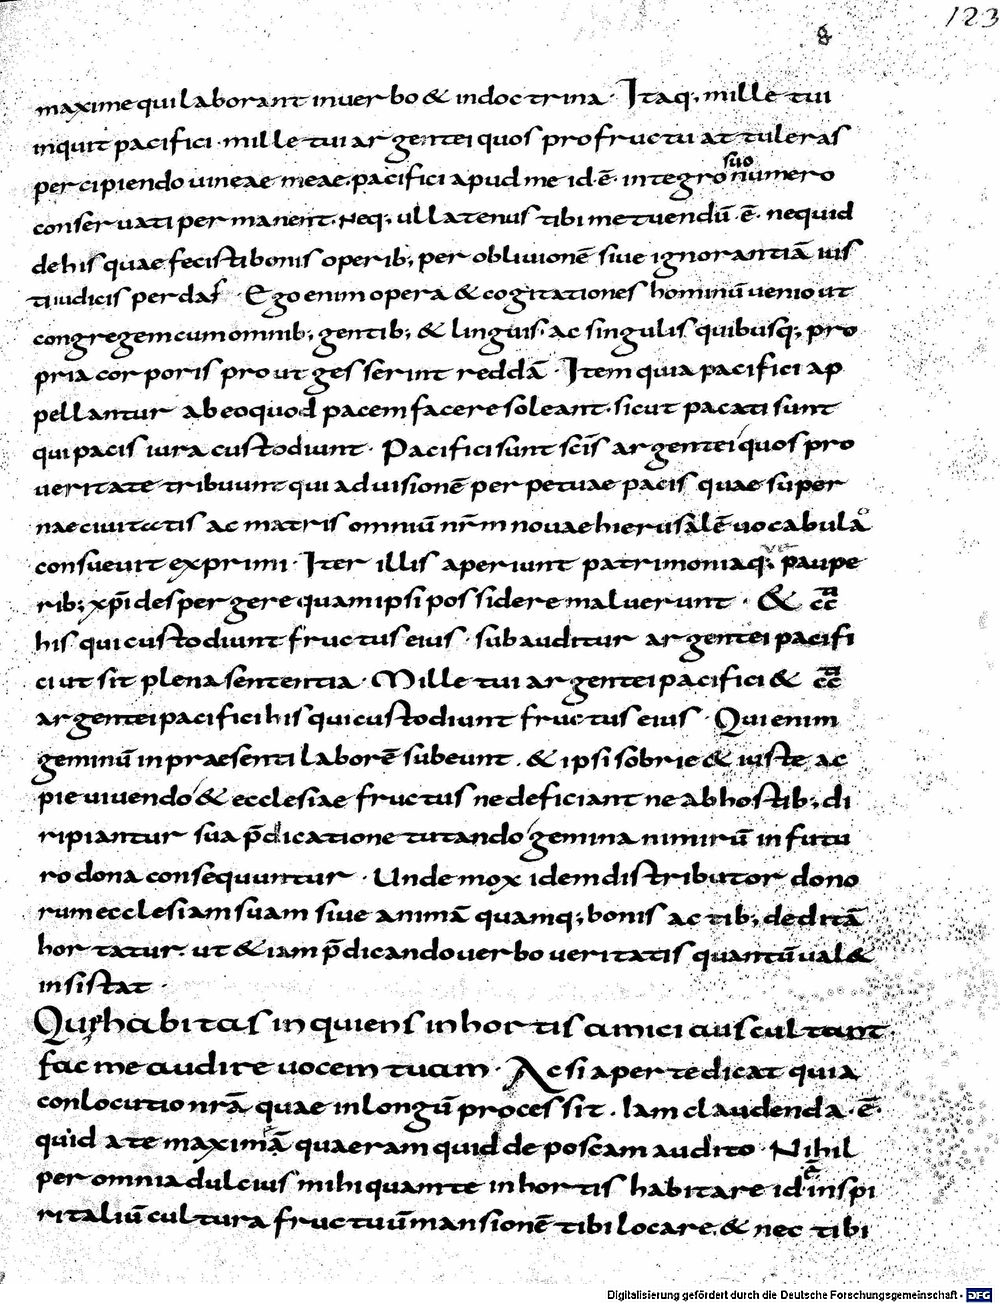 123
maxime qui laborant inuerbo & indoctrina · Itaq; mille tui
inquit pacifici · mille tui argentei quos profructu attuleras
percipiendo uineae meae · pacifici apud me id ē · integro suo numero
conseruati permanent · Neq; ullatenus tibi metuendū · ē · nequid
dehis quae fecisti bonis operib; per obliuionē siue ignorantiā uis
ti iudicis perdas · Ego enim opera & cogitationes hominū uenio ut
congregem cum omnib; gentib; & linguis · ac singulis quibusq; pro
pria corporis prout gesserint reddā · Item quia pacifici ap
pellantur ab eo quod pacem facere soleant · sicut pacati sunt
qui pacis iura custodiunt · Pacifici sunt scīs argentei quos pro
ueritate tribuunt qui ad uisionē perpetuae pacis quae super
nae ciuitatis ac matris omniū nrm̄ nouae hierusalē uocabulo
consueuit exprimi · Iter illis aperiunt patrimoniaq; paupe
rib; xp̄i despergere quam ipsi possidere maluerunt · & cc
his qui custodiunt fructus eius · subauditur argentei pacifi
ci ut sit plena sententia · Mille tui argentei pacifici & cc
argentei pacifici his qui custodiunt fructus eius · Qui enim
geminū in praesenti laborē subeunt · & ipsi sobrie & iuste ac
pie uiuendo & ecclesiae fructus ne deficiant ne ab hostib; di
ripiantur sua p̄dicatione tutando gemina nimirū in futu
ro dona consequuntur · Unde mox idem distributor dono
rum ecclesiam suam siue animā quamq; bonis actib; deditā
hortatur · ut & iam p̄dicando uerbo ueritatis quantū ual&
insistat ·
Quae habitas inquiens in hortis amici auscultant
fac me audire uocem tuam · Ac si aperte dicat quia
conlocutio nrā quae in longū processit · Iam claudenda · ē ·
quid a te maximā quaeram quid deposcam audito · Nihil
per omnia dulcius mihi quam te in hortis habitare id ē in spi
ritaliū cultura fructuū mansionē tibi locare · & nec tibi
Digitalisierung gefördert durch die Deutsche Forschungsgemeinschaft - DFG